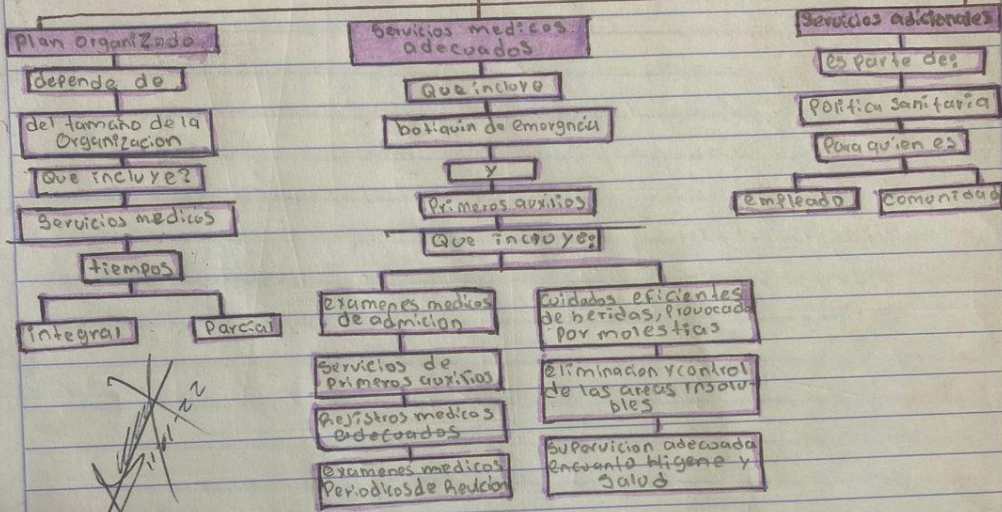 Plan Organizado
depende de
del tamaño de la
Organizacion
Que incluye?
Servicios medicos
tiempos
integral
Parcial
Servicios medicos
adecuados
Que incluye
botiquin de emergncia
y
Primeros auxilios
Que incluye:
examenes medicos
de admicion
Servicios de
primeros auxilios
Registros medicos
adecuados
examenes medicos
Periodicos de Reucion
Cuidados eficientes
de heridas, Provocada
Por molestias
eliminacion y control
de las areas insolu-
bles
Supervicion adecuada
encuanto Higene y
Salud
Servicios adicionales
es parte de:
Politica Sanitaria
Para quien es
empleado
comunidad